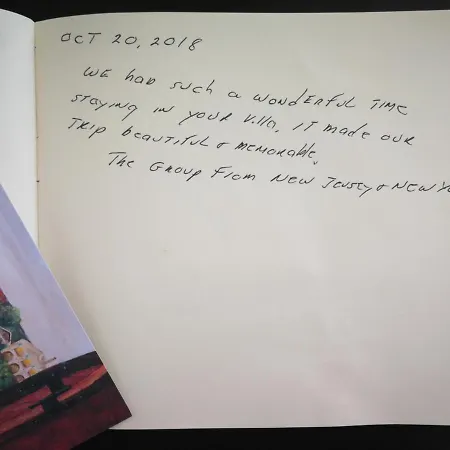 OCT 20, 2018
WE HAD SUCH A WONDERFUL TIME
STAYING IN YOUR VILLA. IT MADE OUR
TRIP BEAUTIFUL & MEMORABLE.
THE GROUP FROM NEW JERSEY & NEW YO